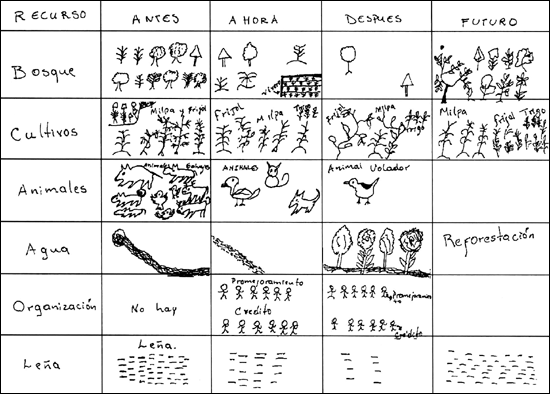 RECURSO ANTES AHORA DESPUES FUTURO
Bosque
vivero
Cultivos
Milpa y Frijol
Frijol
Milpa
Trigo
Frijol
Milpa
Trigo
Milpa
Frijol
Trigo
Animales
ANIMALES
Animal Volador
Agua
Reforestación
Organización
No hay
Promejoramiento
Credito
Promejoramiento
Credito
Leña
Leña.